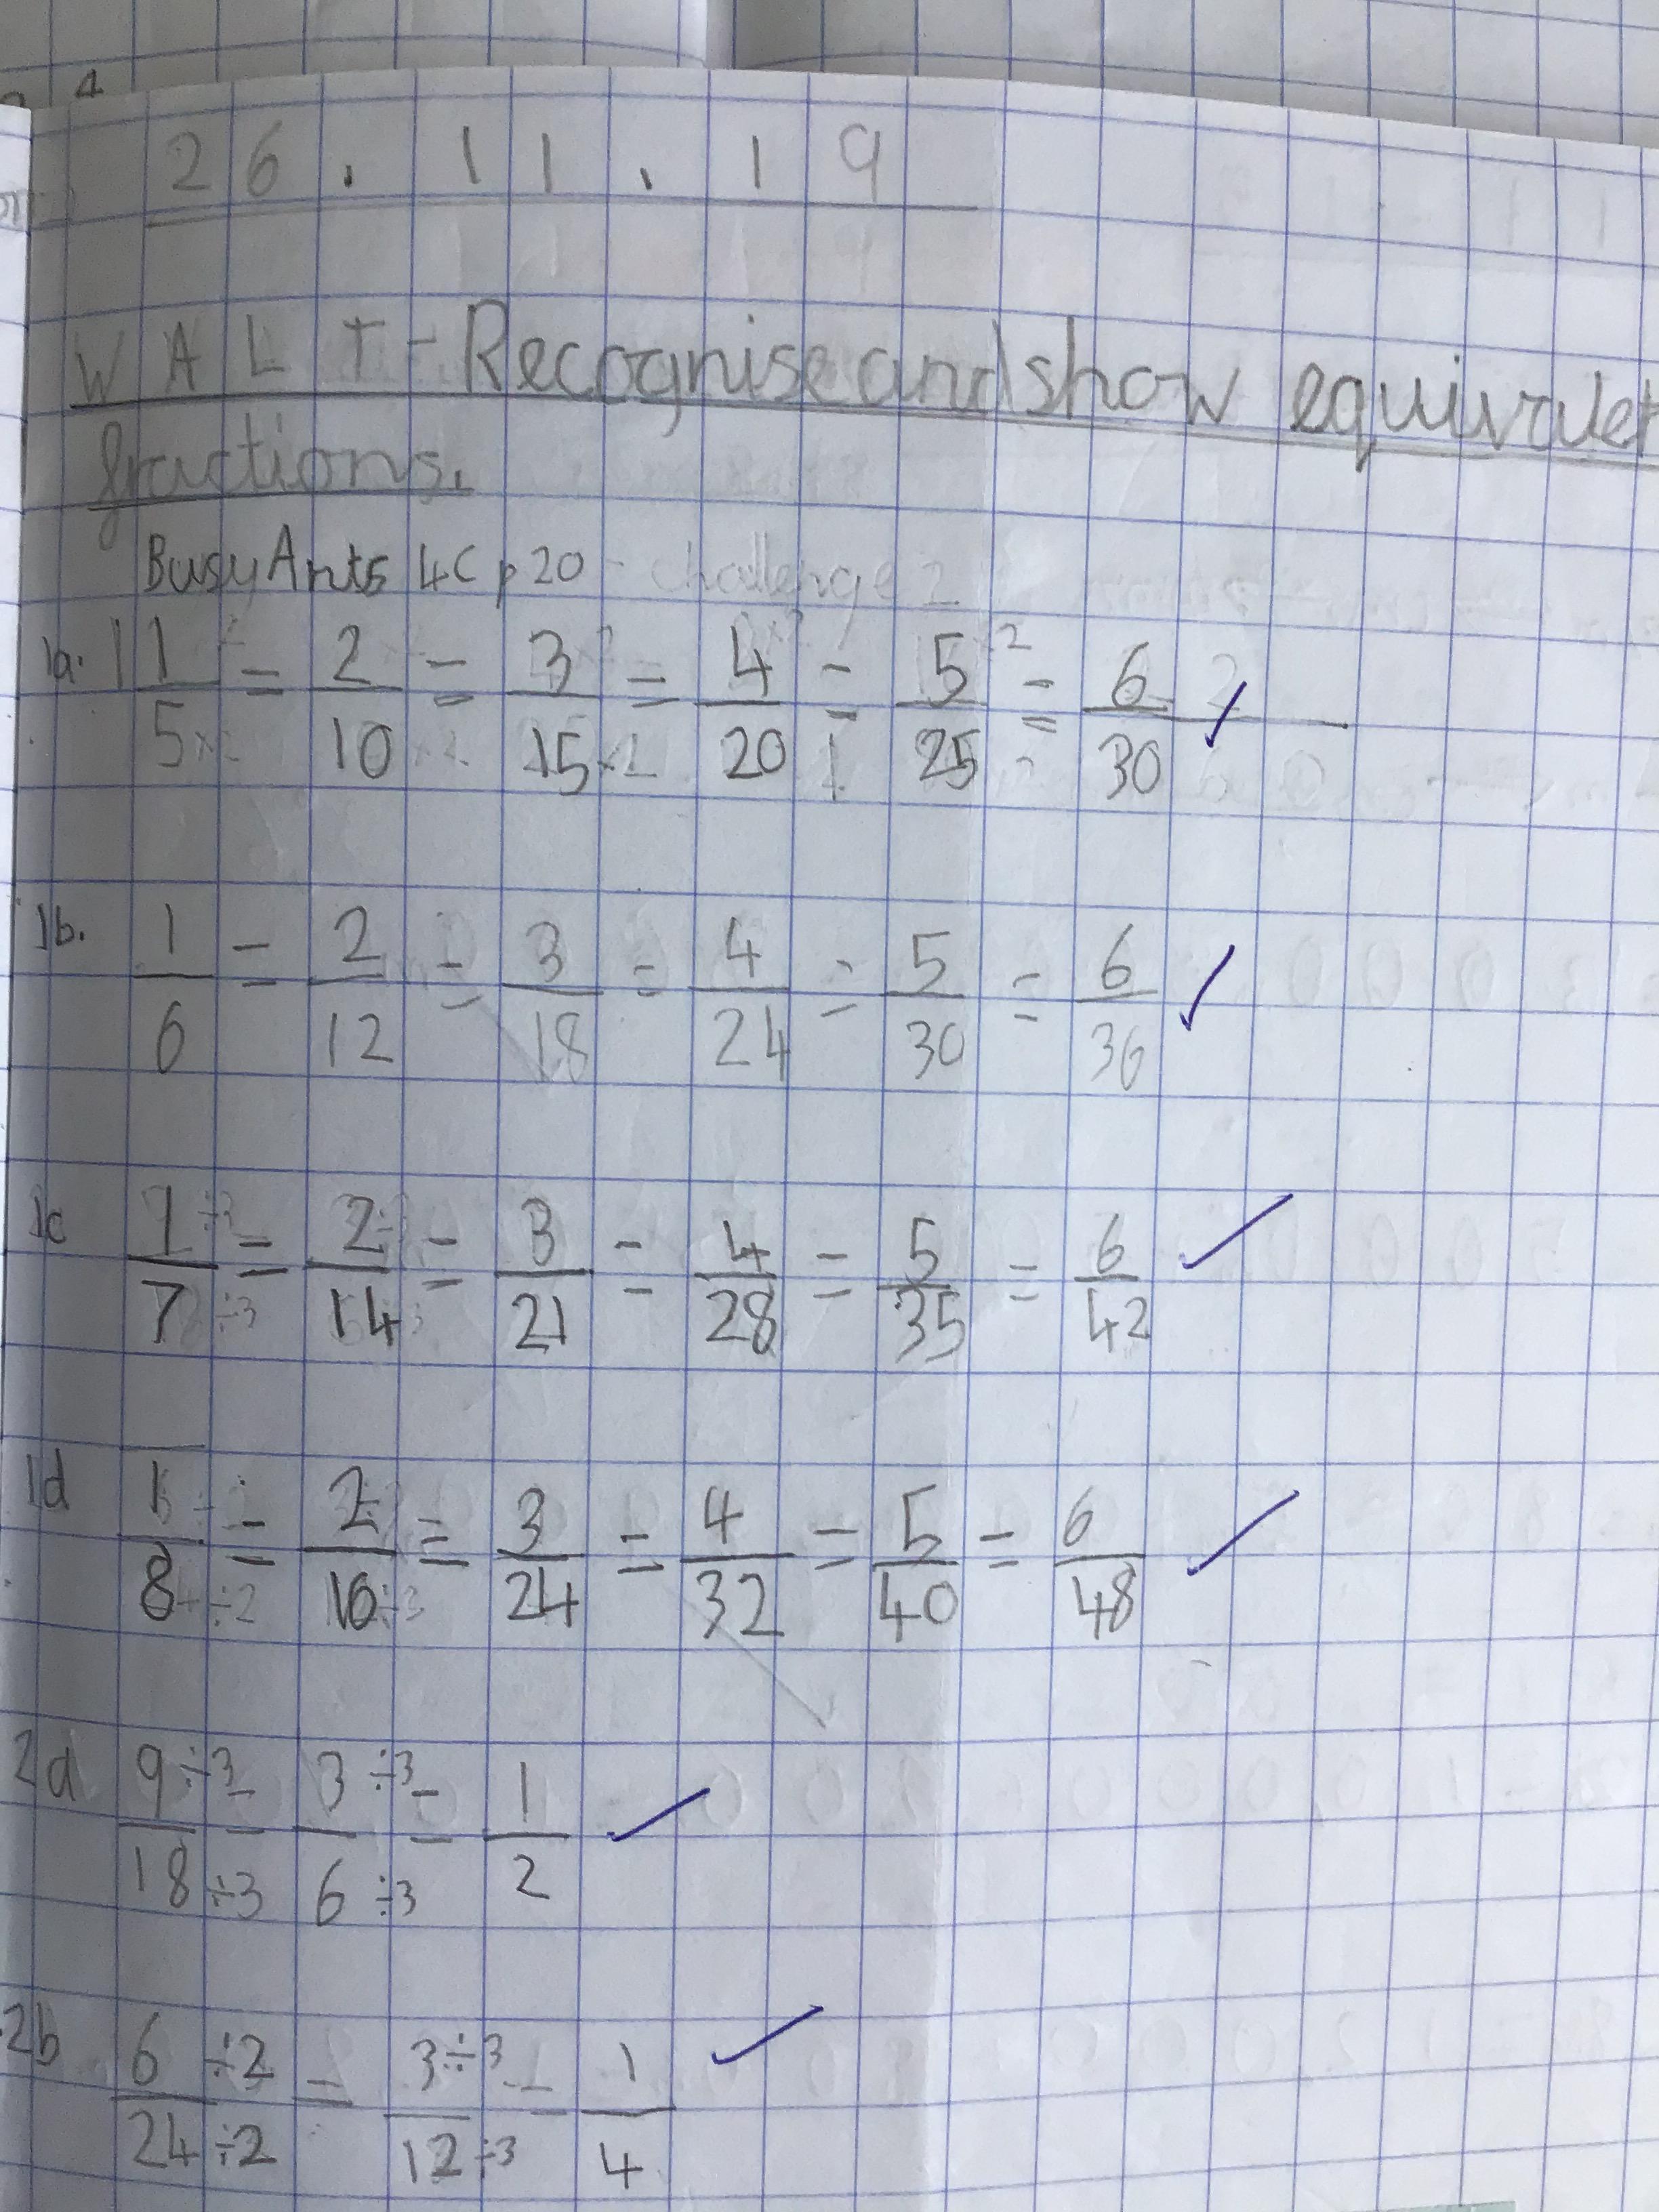 26.11.19
WALT - Recognise and show equivalent
fractions.
Busy Ants 4C p20 - challenge 2
1a. 1/5 = 2/10 = 3/15 = 4/20 = 5/25 = 6/30 ✓
1b. 1/6 = 2/12 = 3/18 = 4/24 = 5/30 = 6/36 ✓
1c 1/7 = 2/14 = 3/21 = 4/28 = 5/35 = 6/42 ✓
1d 1/8 = 2/16 = 3/24 = 4/32 = 5/40 = 6/48 ✓
2a 9÷3/18÷3 = 3÷3/6÷3 = 1/2 ✓
2b 6÷2/24÷2 = 3÷3/12÷3 = 1/4 ✓